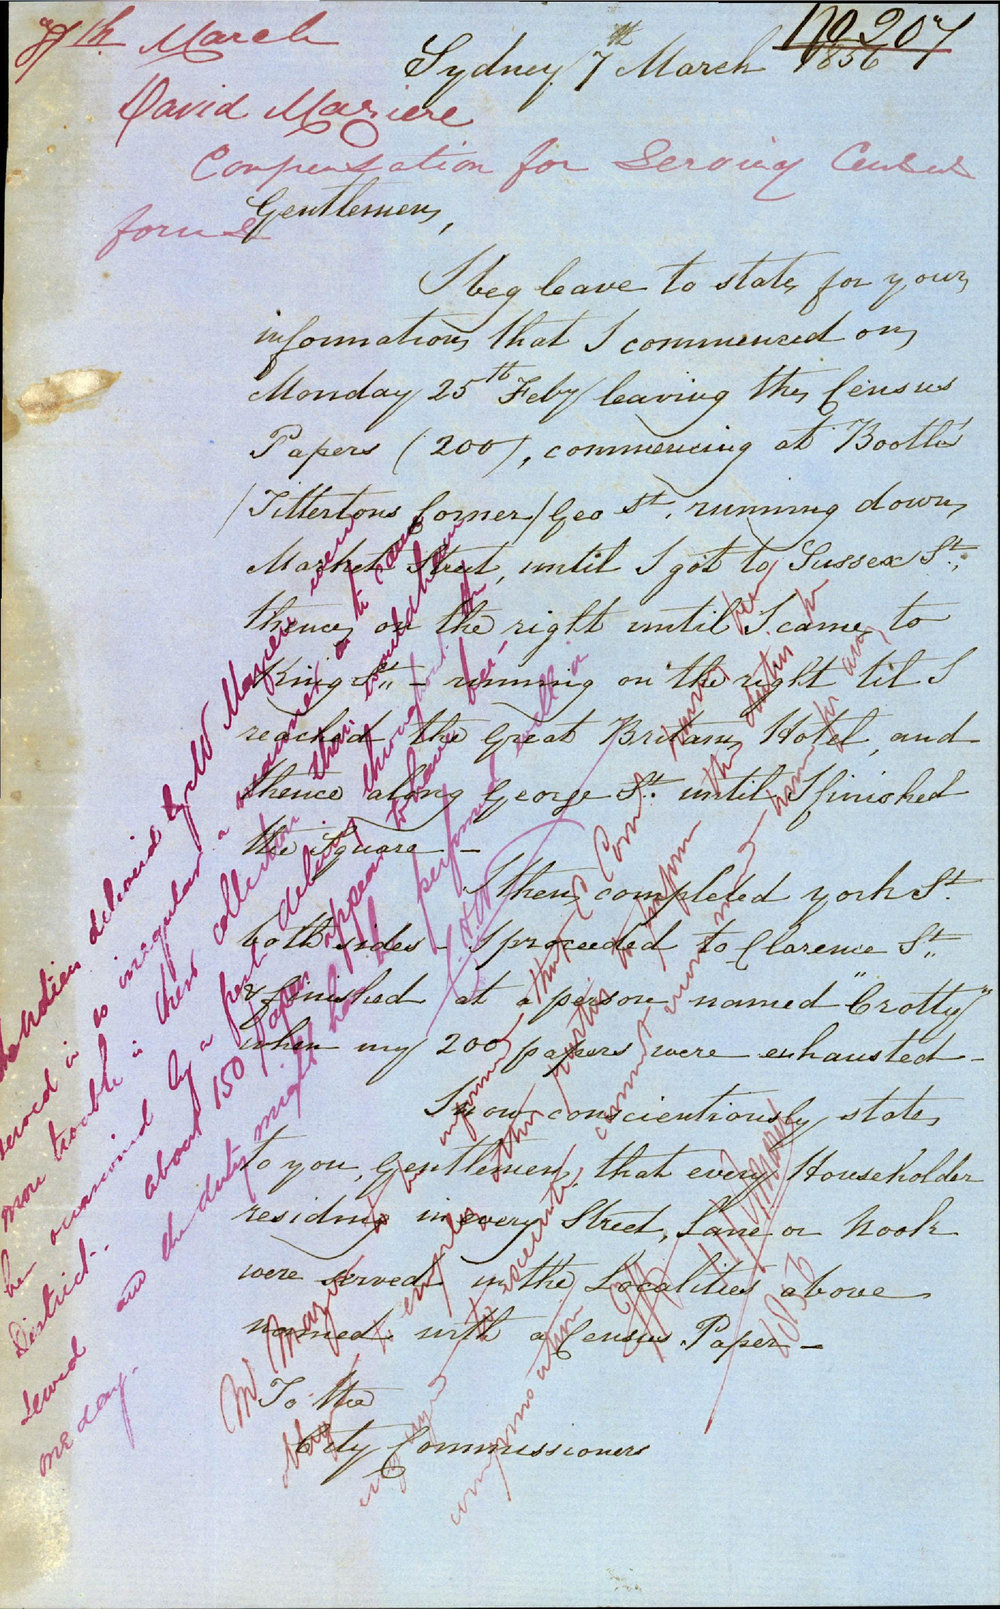 No 207
7th March
Sydney 7th March 1856
David Maziere
Compensation for Serving Census
forms
Gentlemen,
I beg leave to state, for your
information, that I commenced on,
Monday 25th Feby leaving the Census
Papers (200), commencing at Booth's
(Tittertons Corner) Geo St. running down,
Market Street, until I got to Sussex St.,
thence, on the right until I came, to
King St. - running on the right til I
reached the Great Britain, Hotel, and
thence along George St. until I finished
the Square -
I then, completed York St.
both sides - I proceeded to Clarence St.
& finished at a person named "Crotty"
when my 200 papers were exhausted -
I now conscientiously state,
to you, Gentlemen, that every Householder
residing in every Street, Lane or Nook
were served in the Localities above
named with a Census Paper -
To the
City Commissioners
delivered by Mr Maziere were
served in so irregular a manner as to cause
more trouble in their collection than would have
been occasioned by a fresh delivery throughout the
District. about 150 papers appear to have been
served and the duty might have been performed well in
one day.
Mr Maziere to be informed that the Comrs cannot